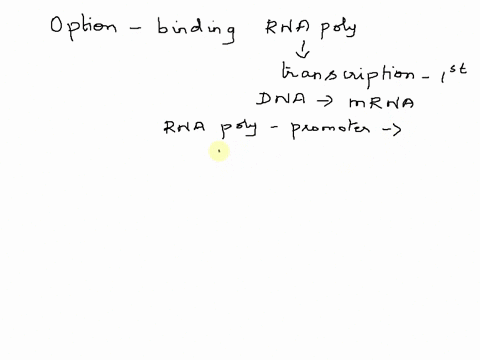 Option - binding RNA poly
↓
transcription - 1st
DNA → mRNA
RNA poly - promoter →